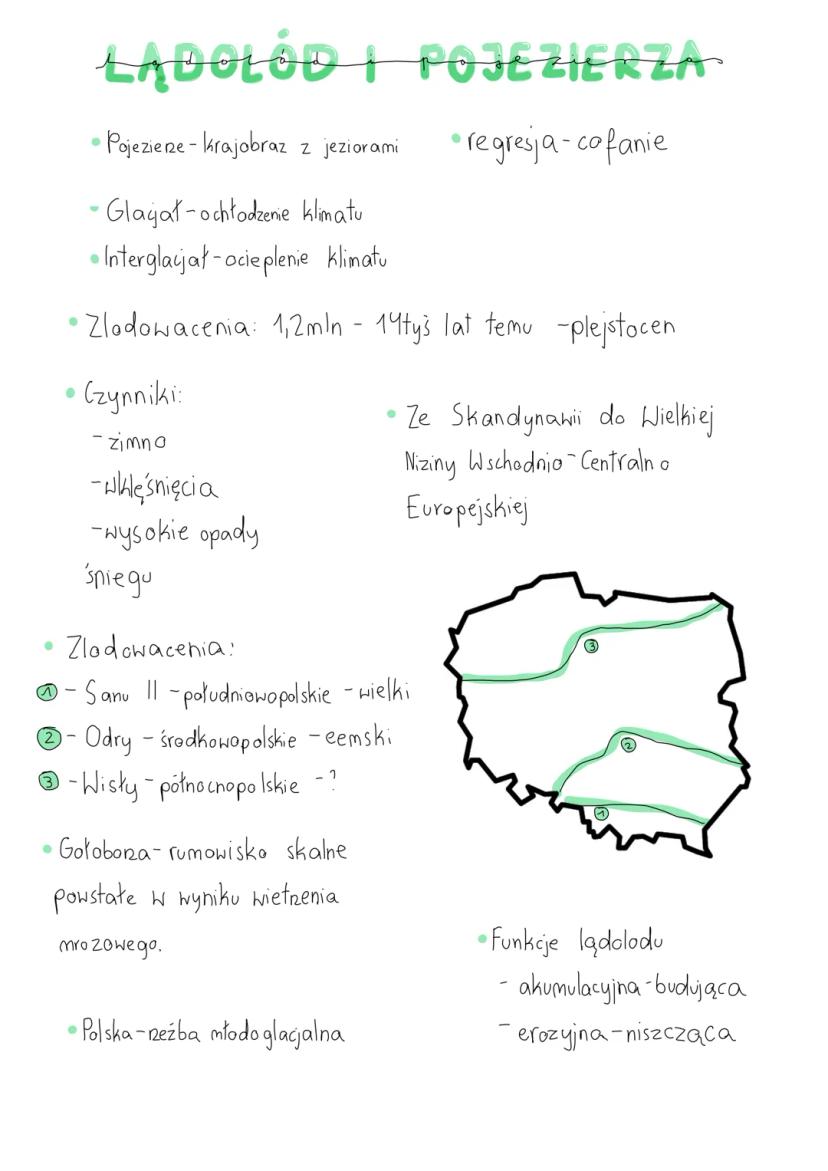 LĄDOLÓD I POJEZIERZA
Pojezierze - krajobraz z jeziorami
regresja - cofanie
Glacjał - ochłodzenie klimatu
Interglacjał - ocieplenie klimatu
Zlodowacenia: 1,2mln - 14tyś lat temu - plejstocen
Czynniki:
- zimno
- wklęśnięcia
- wysokie opady
śniegu
Ze Skandynawii do Wielkiej
Niziny Wschodnio - Centralno
Europejskiej
Zlodowacenia:
1 - Sanu II - południowopolskie - wielki
2 - Odry - środkowopolskie - eemski
3 - Wisły - północnopolskie - ?
3
2
1
Gołoborza - rumowisko skalne
powstałe w wyniku wietrzenia
mrozowego.
Polska - rzeźba młodoglacjalna
Funkcje lądolodu
- akumulacyjna - budująca
- erozyjna - niszcząca